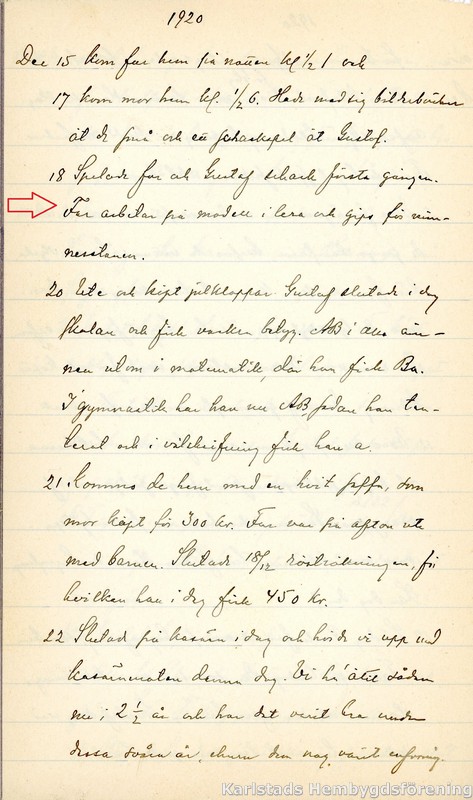 1920
Dec 15 kom far hem på natten kl ½ 1 och
17 kom mor hem kl. ½ 6. Hade med sig bilderböcker
åt de små och ett schackspel åt Gustaf.
18 Spelade far och Gustaf schack första gången.
Far arbetar på modell i lera och gips för min-
nesstenen.
20 Ute och köpt julklappar. Gustaf slutade i dag
skolan och fick vacker betyg. AB i alla äm-
nen utom i matematik, där han fick Ba.
I gymnastik har han nu AB, sedan han
och i välskrifning fick han a.
21. Kommo de hem med en hvit soffa, som
mor köpt för 300 kr. Far var på afton ute
med barnen. Slutade 18/12 rösträkningen, för
hvilken han i dag fick 450 kr.
22 Slutade på kasern i dag och hörde vi upp med
kasernmaten denna dag. Vi ha ätit sådan
nu i 2 ½ år och har det varit bra under
dessa svåra år, ehuru den nog varit enformig.
Karlstads Hembygdsförening